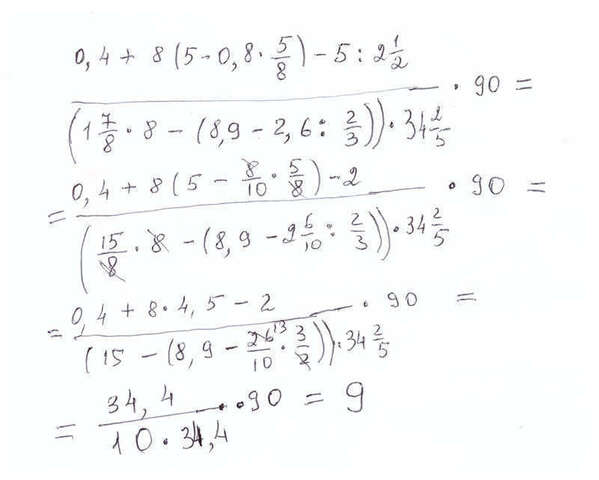 0,4 + 8 (5 - 0,8 · 5/8) - 5 : 2 1/2
(1 7/8 · 8 - (8,9 - 2,6 : 2/3)) · 34 2/5 · 90 =
0,4 + 8 (5 - 8/10 · 5/8) - 2
= (15/8 · 8 - (8,9 - 2 6/10 : 2/3)) · 34 2/5 · 90 =
0,4 + 8 · 4,5 - 2
= (15 - (8,9 - 26 13/10 · 3/2)) · 34 2/5 · 90 =
34,4
= 10 · 34,4 · 90 = 9